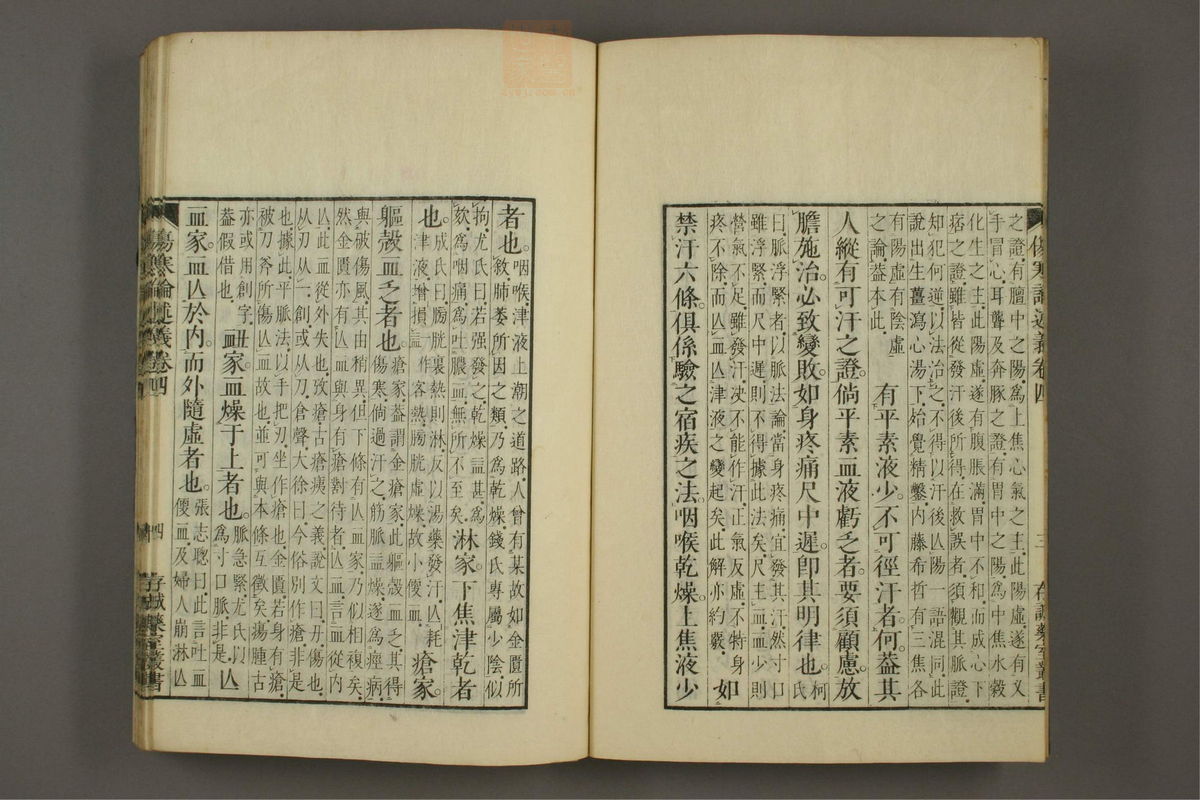 傷寒論述義卷四 三 存誠藥室叢書
之證有膻中之陽爲上焦心氣之主此陽虛遂有叉
手冒心耳聾及奔豚之證有胃中之陽爲中焦水穀
化生之主此陽虛遂有腹脹滿胃中不和而成心下
痞之證雖皆從發汗後所得在救誤者須觀其脈證
知犯何逆以法治之不得以汗後亾陽一語混同此
說出生薑瀉心湯下始覺精繫內藤希哲有三焦各
有陽虛有陰虛
之論蓋本此 有平素液少不可徑汗者何蓋其
人縱有可汗之證倘平素血液虧乏者要須顧慮放
膽施治必致變敗如身疼痛尺中遲卽其明律也柯氏
曰脈浮緊者以脈法論當身疼痛宜發其汗然寸口
雖浮緊而尺中遲則不得據此法矣尺主血血少則
營氣不足雖發汗决不能作汗正氣反虛不特身
疼不除而亾血亾津液之變起矣此解亦約嚴 如
禁汗六條俱係驗之宿疾之法咽喉乾燥上焦液少
者也 咽喉津液上潮之道路人曾有某故如金匱所
敘肺萎所因之類乃爲乾燥錢氏專屬少陰似
拘尤氏曰若强發之乾燥益甚爲
欬爲咽痛爲吐膿血無所不至矣 淋家下焦津乾者
也 成氏曰膀胱裏熱則淋反以湯藥發汗亾耗
津液增損一作益客熱膀胱虛燥故小便血 瘡家
軀殼血乏者也 瘡家蓋謂金瘡家此軀殼血乏其得
傷寒倘過汗之筋脈益燥遂爲痙病
與破傷風其由稍異但下條有亾血家乃似相複矣
然金匱亦有亾血與身有瘡對待者亾血言血從內
亾此血從外失也攷瘡古瘡痍之義說文曰刅傷也
从刃从一創或从刀倉聲大徐曰今俗別作瘡非是
也據此平脈法以手把刃坐作瘡也金匱若身有瘡
被刀斧所傷亾血故也並可與本條互徵矣瘍腫古
亦或用創字
蓋假借也 衄家血燥于上者也 脈急緊尤氏以
爲寸口脈非是 亾
血家血亾於內而外隨虛者也 張志聰曰此言吐血
便血及婦人崩淋亾
傷寒論述義卷四 四 存誠藥室叢書